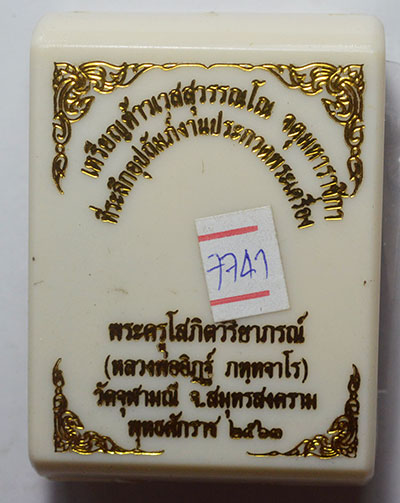 เหรียญท้าวเวสสุวรรณโณ จตุมหาราชิกา
ที่ระลึกอุปถัมภ์งานประกวดพระเครื่อง
ว747
พระครูโสภิตวิริยาภรณ์
(หลวงพ่ออิฏฐ์ ภทฺทจาโร)
วัดจุฬามณี จ.สมุทรสงคราม
พุทธศักราช ๒๕๖๓